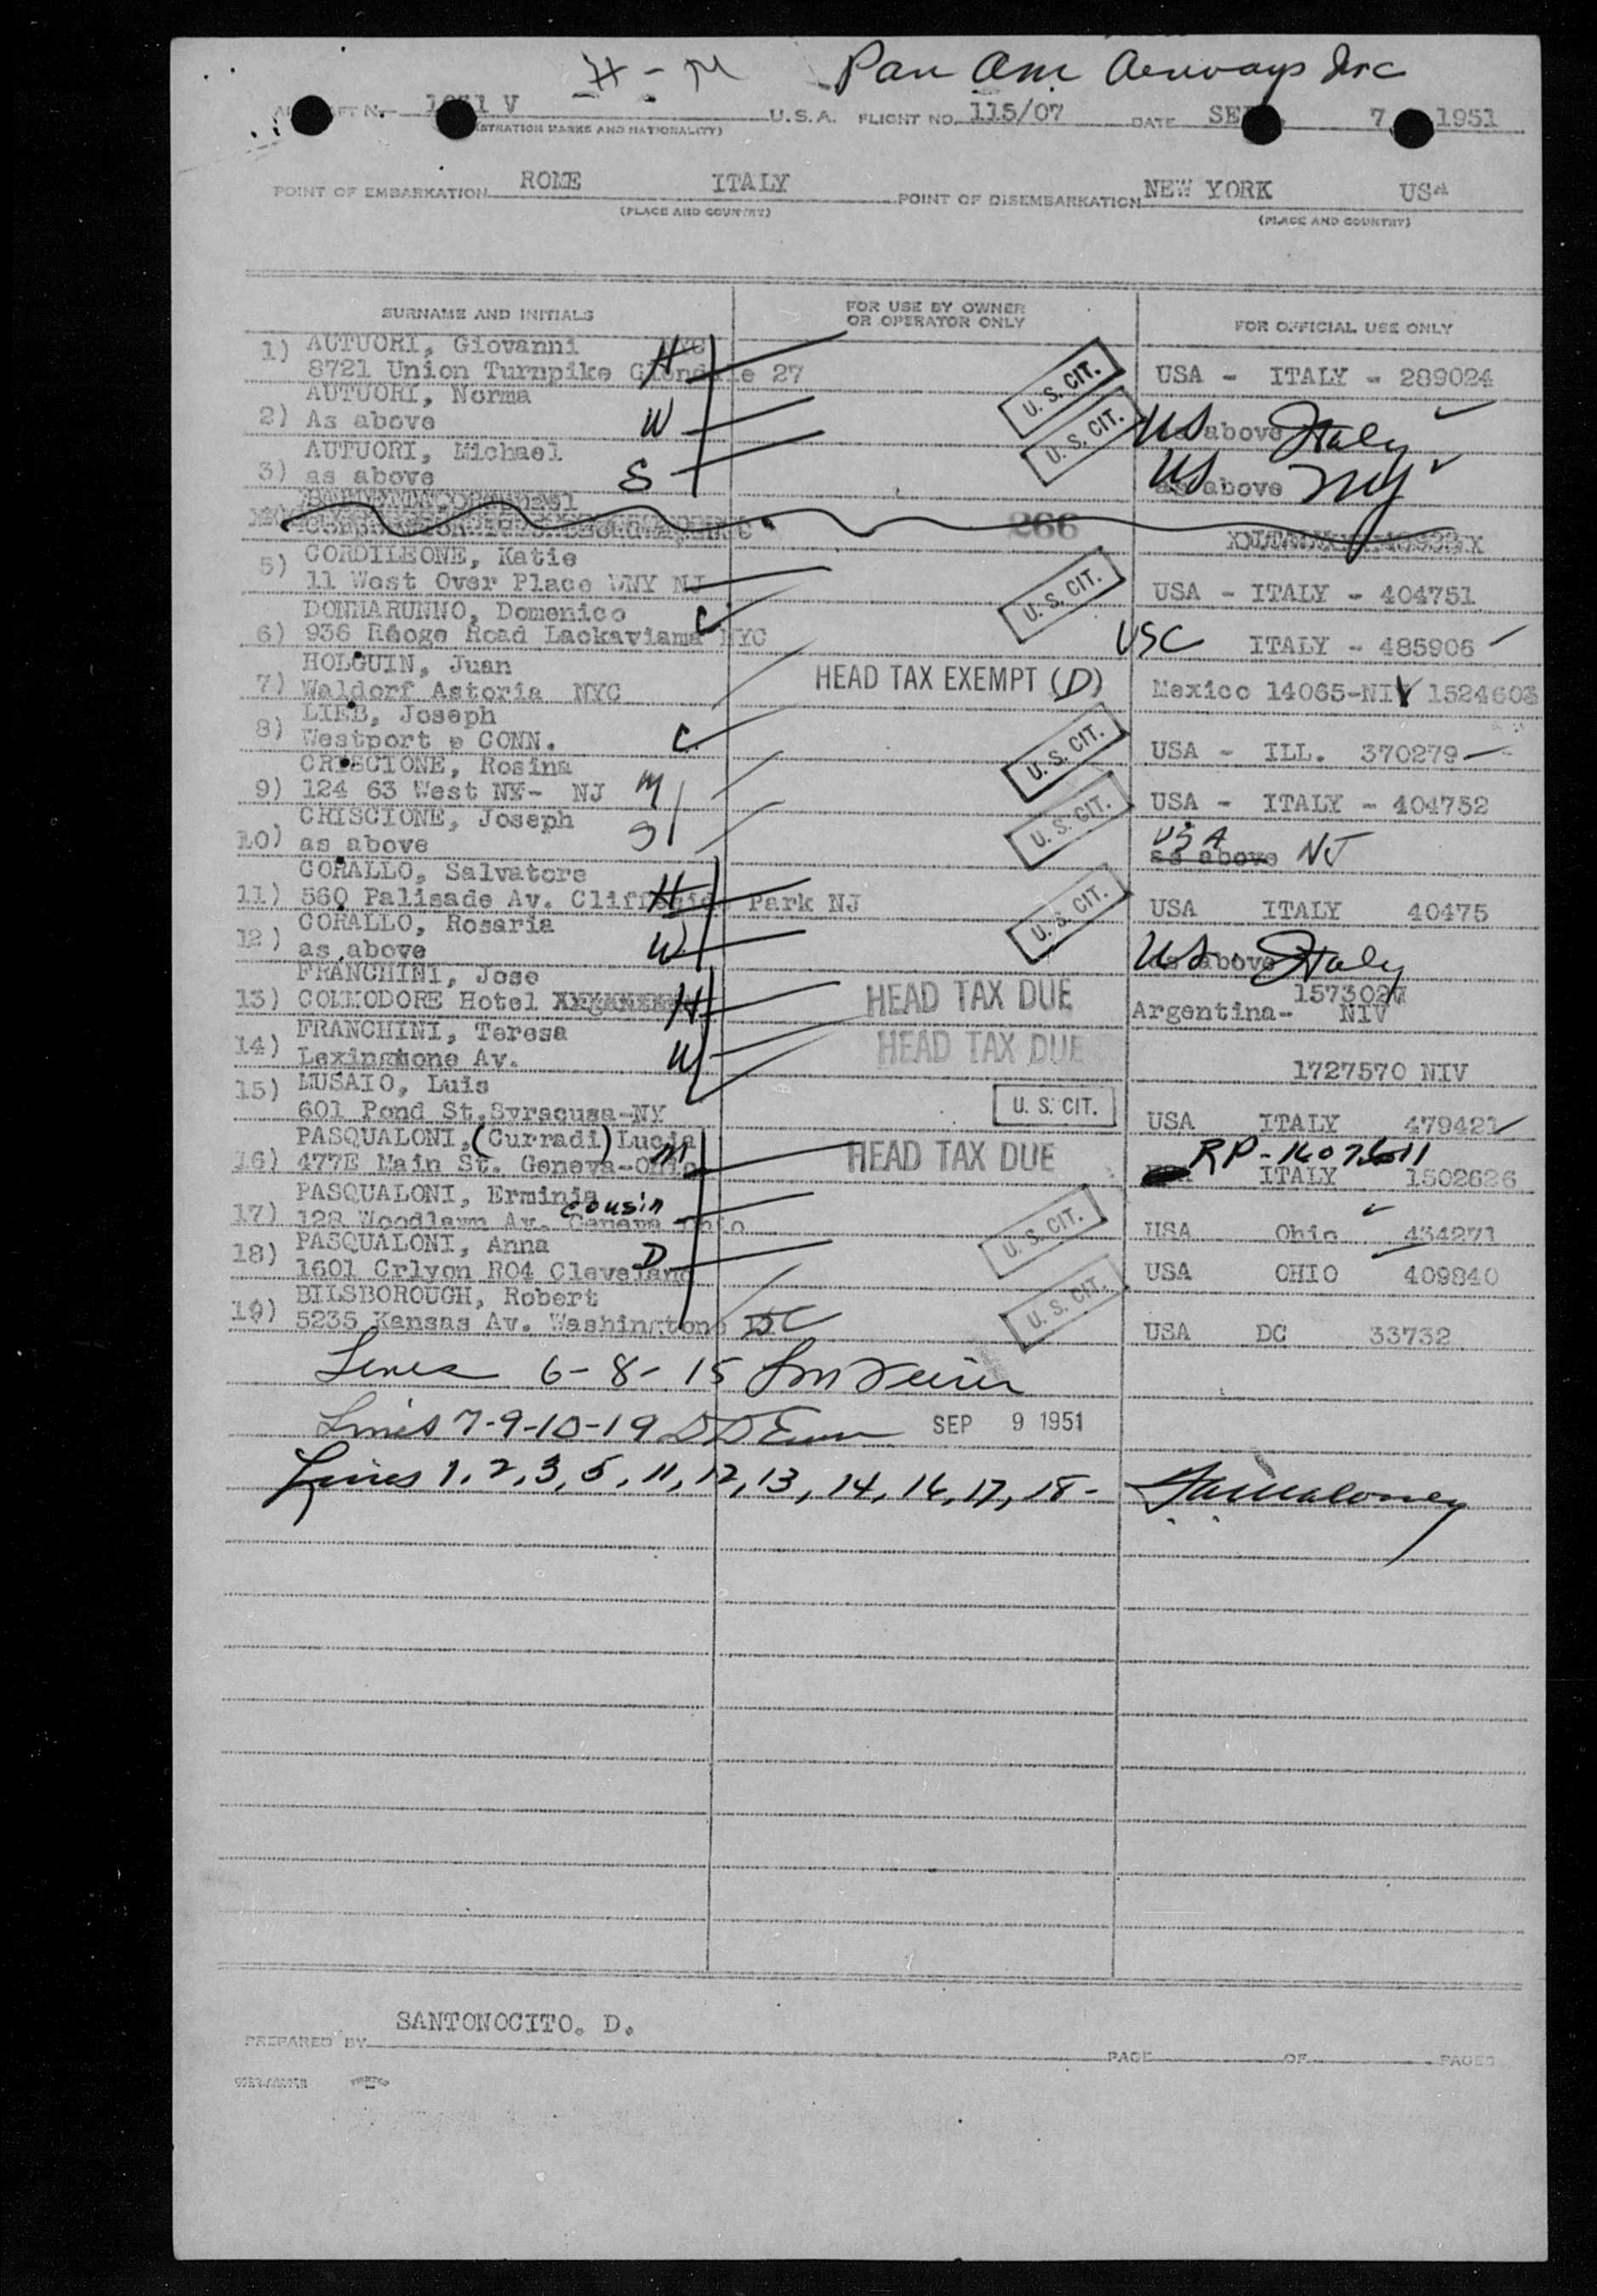 H - M Pan Am Airways Inc
V U.S.A. FLIGHT NO. 115/07 DATE 7 1951
(REGISTRATION MARKS AND NATIONALITY)
POINT OF EMBARKATION ROME ITALY POINT OF DISEMBARKATION NEW YORK USA
(PLACE AND COUNTRY) (PLACE AND COUNTRY)
SURNAME AND INITIALS FOR USE BY OWNER OR OPERATOR ONLY FOR OFFICIAL USE ONLY
1) AUTUORI, Giovanni NYC
8721 Union Turnpike Glendale 27 H U. S. CIT. USA - ITALY - 289024
AUTUORI, Norma
2) As above W U. S. CIT. US as above Italy
AUTUORI, Michael
3) as above S US as above NY
266
5) CORDILEONE, Katie
11 West Over Place WNY NJ U. S. CIT. USA - ITALY - 404751
DONNARUNNO, Domenico C
6) 936 Road Lackaviama NYC USC ITALY - 485906
HOLGUIN, Juan
7) Waldorf Astoria NYC HEAD TAX EXEMPT (D) Mexico 14065-NIV 1524603
LIEB, Joseph
8) Westport CONN. C U. S. CIT. USA - ILL. 370279
CRISCIONE, Rosina
9) 124 63 West NY- NJ M U. S. CIT. USA - ITALY - 404752
CRISCIONE, Joseph
10) as above S USA as above NJ
CORALLO, Salvatore
11) 560 Palisade Av. Cliffside Park NJ H U. S. CIT. USA ITALY 40475
CORALLO, Rosaria
12) as above W US as above Italy
FRANCHINI, Jose 1573027
13) COMMODORE Hotel H HEAD TAX DUE Argentina- NIV
FRANCHINI, Teresa
14) Av. W HEAD TAX DUE 1727570 NIV
15) MUSAIO, Luis
601 Pond St.Syracusa-NY U. S. CIT. USA ITALY 479421
PASQUALONI, (Curradi) Lucia RP-1607611
16) 477E Main St. Geneva-Ohio M HEAD TAX DUE ITALY 1502626
PASQUALONI, Erminia cousin
17) 128 Woodlawn Av. Geneva Ohio U. S. CIT. USA Ohio 434271
18) PASQUALONI, Anna
1601 Crlyon RO4 Cleveland D U. S. CIT. USA OHIO 409840
BILSBOROUGH, Robert
19) 5235 Kansas Av. Washington DC USA DC 33732
6-8-15
Lines 7-9-10-19 SEP 9 1951
Lines 1, 2, 3, 5, 11, 12, 13, 14, 16, 17, 18-
SANTONOCITO. D.
PREPARED BY PAGE OF PAGES